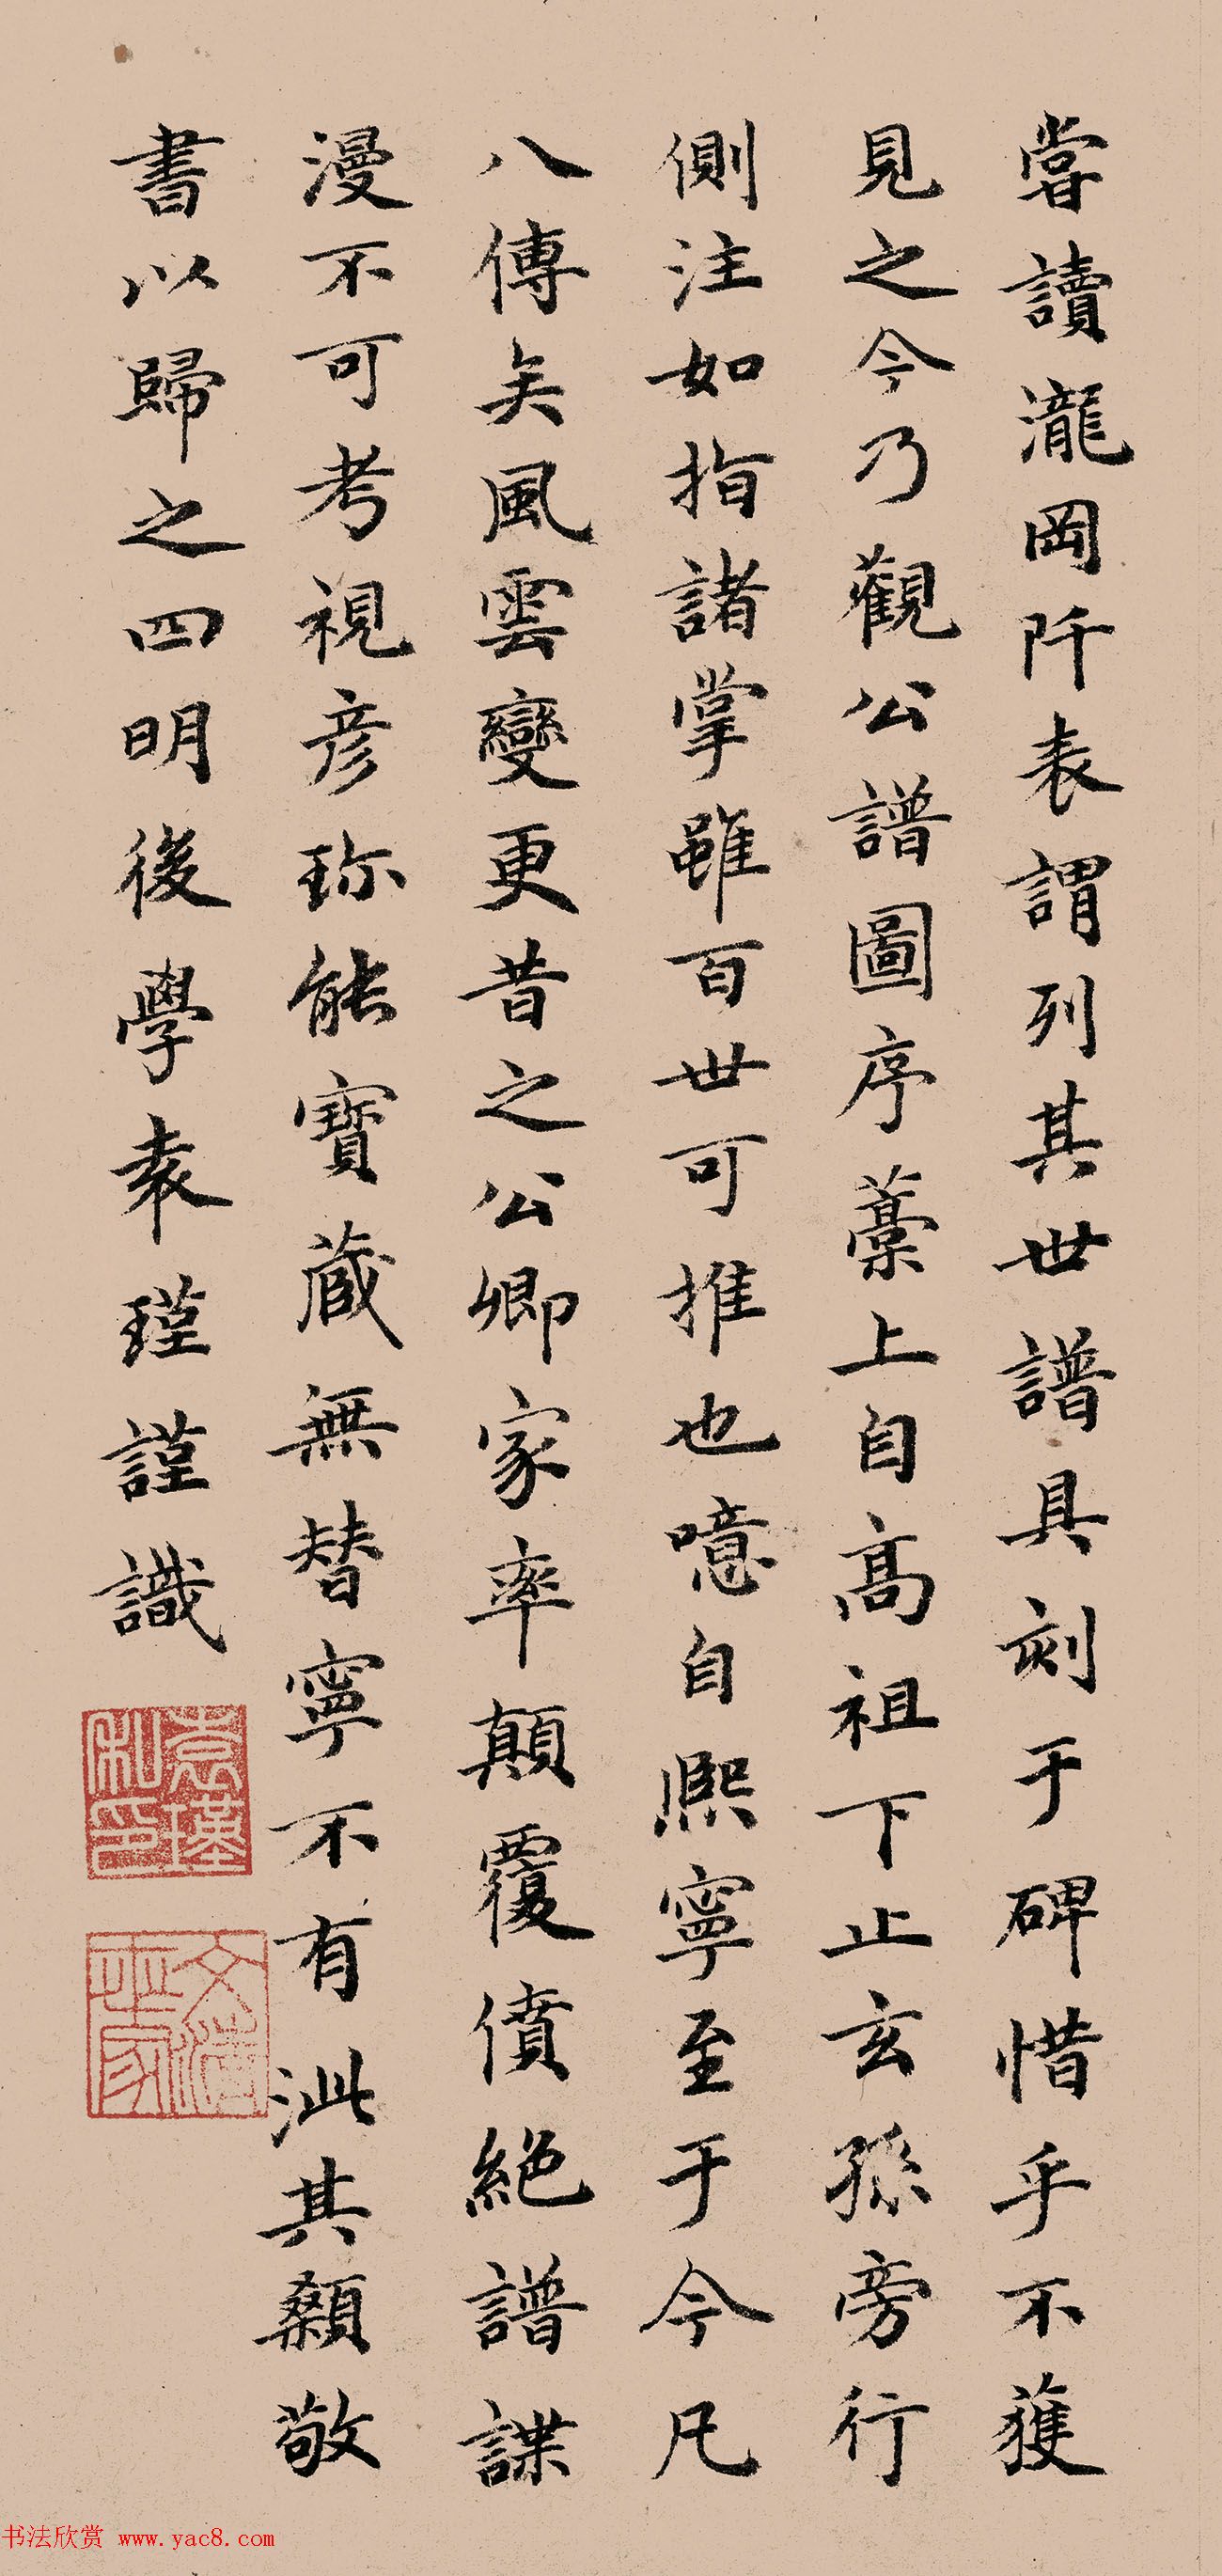 嘗讀瀧岡阡表謂列其世譜具刻于碑惜乎不獲
見之今乃觀公譜圖序藁上自高祖下止玄孫旁行
側注如指諸掌雖百世可推也噫自熙寧至于今凡
八傳矣風雲變更昔之公卿家率顛覆僨絕譜諜
漫不可考視彦珎能寶蔵無替寧不有泚其顙敬
書以歸之四明後學袁瑾謹識
袁瑾私印
书法欣赏 www.yac8.com